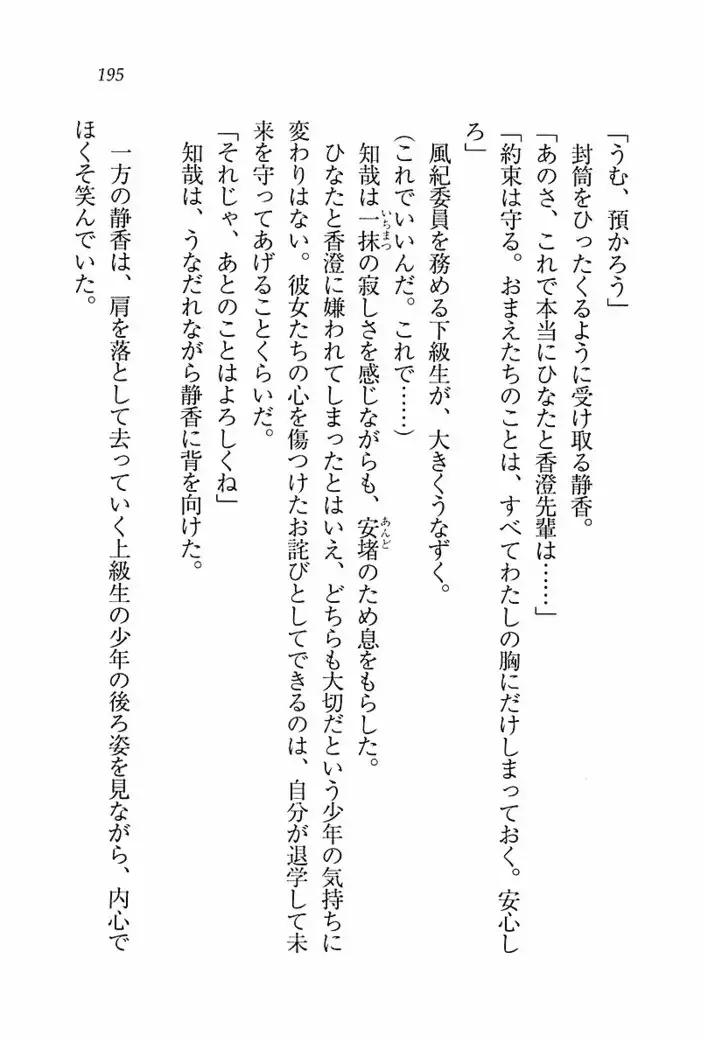 195
「うむ、預かろう」
封筒をひったくるように受け取る静香。
「あのさ、これで本当にひなたと香澄先輩は……」
「約束は守る。おまえたちのことは、すべてわたしの胸にだけしまっておく。安心し
ろ」
風紀委員を務める下級生が、大きくうなずく。
(これでいいんだ。これで……)
知哉は一抹いちまつの寂しさを感じながらも、安堵あんどのため息をもらした。
ひなたと香澄に嫌われてしまったとはいえ、どちらも大切だという少年の気持ちに
変わりはない。彼女たちの心を傷つけたお詫びとしてできるのは、自分が退学して未
来を守ってあげることくらいだ。
「それじゃ、あとのことはよろしくね」
知哉は、うなだれながら静香に背を向けた。
一方の静香は、肩を落として去っていく上級生の少年の後ろ姿を見ながら、内心で
ほくそ笑んでいた。